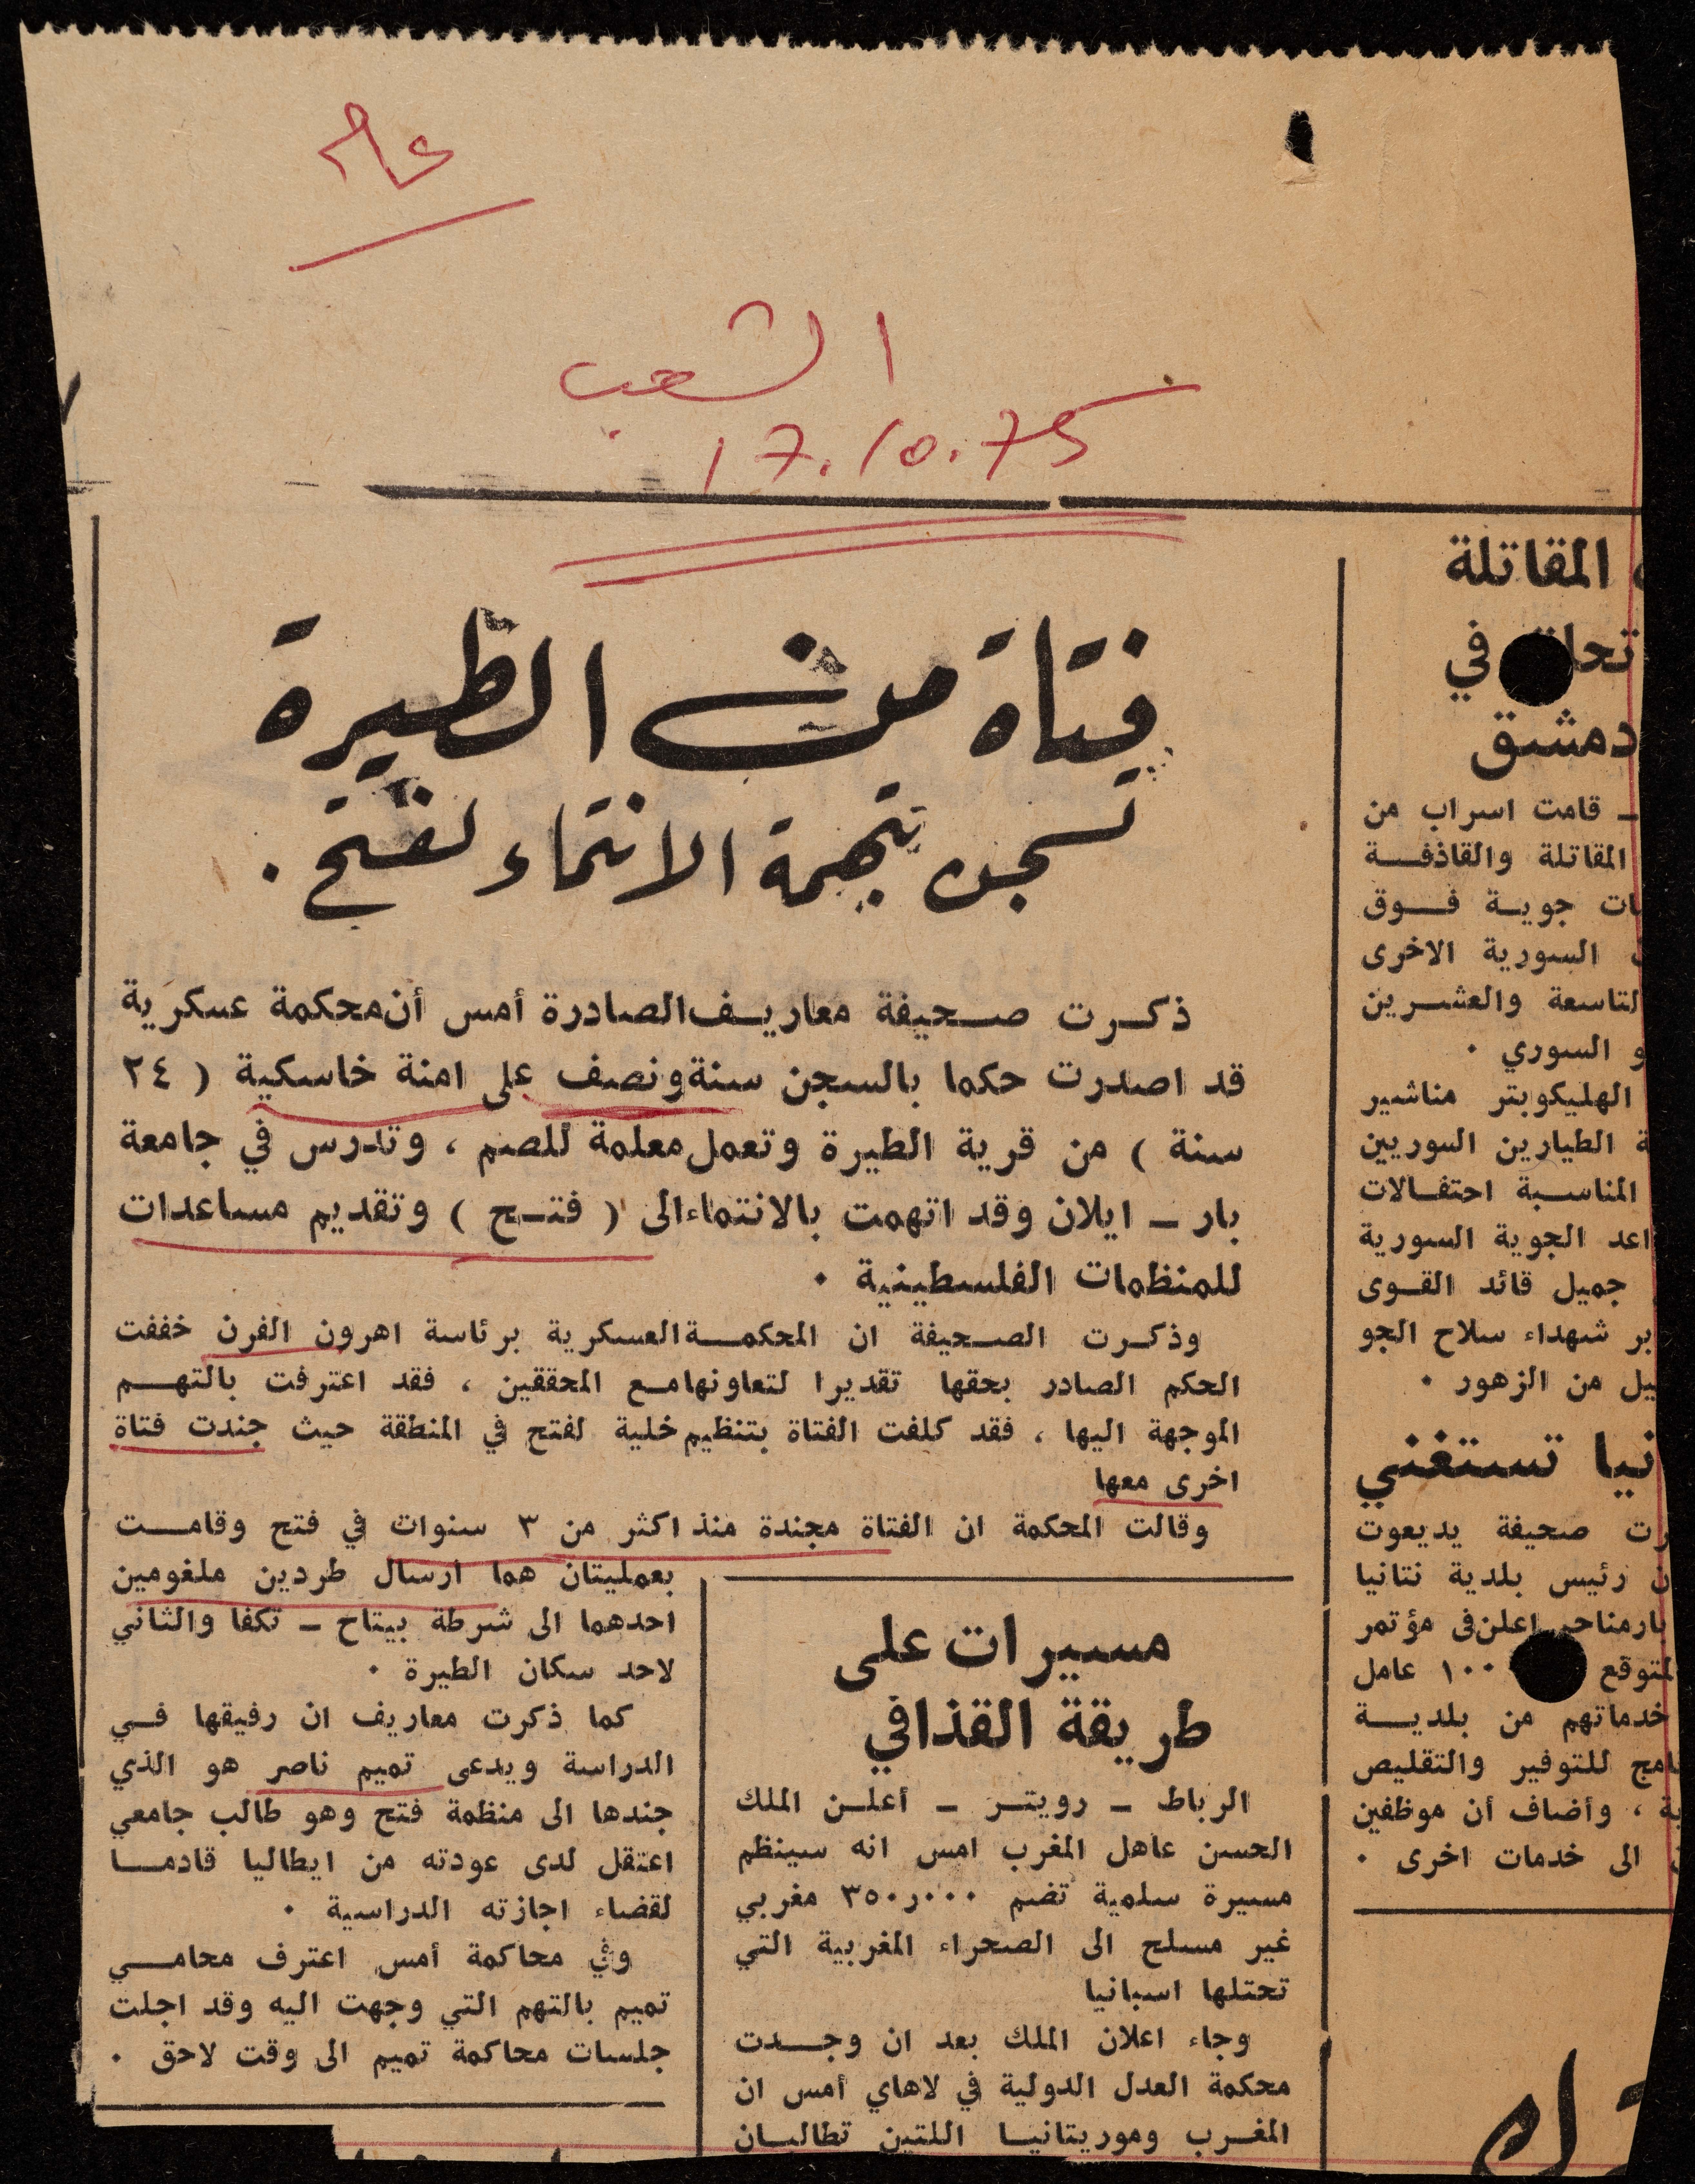 الشعب
17.10.75
فتاة من الطيرة
تسجن بتهمة الانتماء لفتح .
ذكرت صحيفة معاريف الصادرة أمس أن محكمة عسكرية
قد اصدرت حكما بالسجن سنة ونصف على امنة خاسكية ( ٢٤
سنة ) من قرية الطيرة وتعمل معلمة للصم ، وتدرس في جامعة
بار ـ ايلان وقد اتهمت بالانتماء الى ( فتح ) وتقديم مساعدات
للمنظمات الفلسطينية .
وذكرت الصحيفة ان المحكمة العسكرية برئاسة اهرون الفرن خففت
الحكم الصادر بحقها تقديرا لتعاونها مع المحققين ، فقد اعترفت بالتهم
الموجهة اليها ، فقد كلفت الفتاة بتنظيم خلية لفتح في المنطقة حيث جندت فتاة
اخرى معها
وقالت المحكمة ان الفتاة مجندة منذ اكثر من ٣ سنوات في فتح وقامت
بعمليتان هما ارسال طردين ملغومين
احدهما الى شرطة بيتاح ـ تكفا والثاني
لاحد سكان الطيرة .
كما ذكرت معاريف ان رفيقها في
الدراسة ويدعى تميم ناصر هو الذي
جندها الى منظمة فتح وهو طالب جامعي
اعتقل لدى عودته من ايطاليا قادما
لقضاء اجازته الدراسية .
وفي محاكمة أمس اعترف محامي
تميم بالتهم التي وجهت اليه وقد اجلت
جلسات محاكمة تميم الى وقت لاحق .
مسيرات على
طريقة القذافي
الرباط ـ رويتر ـ أعلن الملك
الحسن عاهل المغرب امس انه سينظم
مسيرة سلمية تضم ٣٥٠ر٠٠٠ مغربي
غير مسلح الى الصحراء المغربية التي
تحتلها اسبانيا
وجاء اعلان الملك بعد ان وجدت
محكمة العدل الدولية في لاهاي أمس ان
المغرب وموريتانيا اللتين تطالبان
المقاتلة
في
دمشق
ـ قامت اسراب من
المقاتلة والقاذفة
جوية فوق
السورية الاخرى
لتاسعة والعشرين
و السوري .
الهليكوبتر مناشير
ة الطيارين السوريين
المناسبة احتفالات
اعد الجوية السورية
جميل قائد القوى
بر شهداء سلاح الجو
يل من الزهور .
نيا تستغني
رت صحيفة يديعوت
ن رئيس بلدية نتانيا
اعلن في مؤتمر
لمتوقع ١٠٠ عامل
خدماتهم من بلدية
امج للتوفير والتقليص
ية ، وأضاف أن موظفين
الى خدمات اخرى .